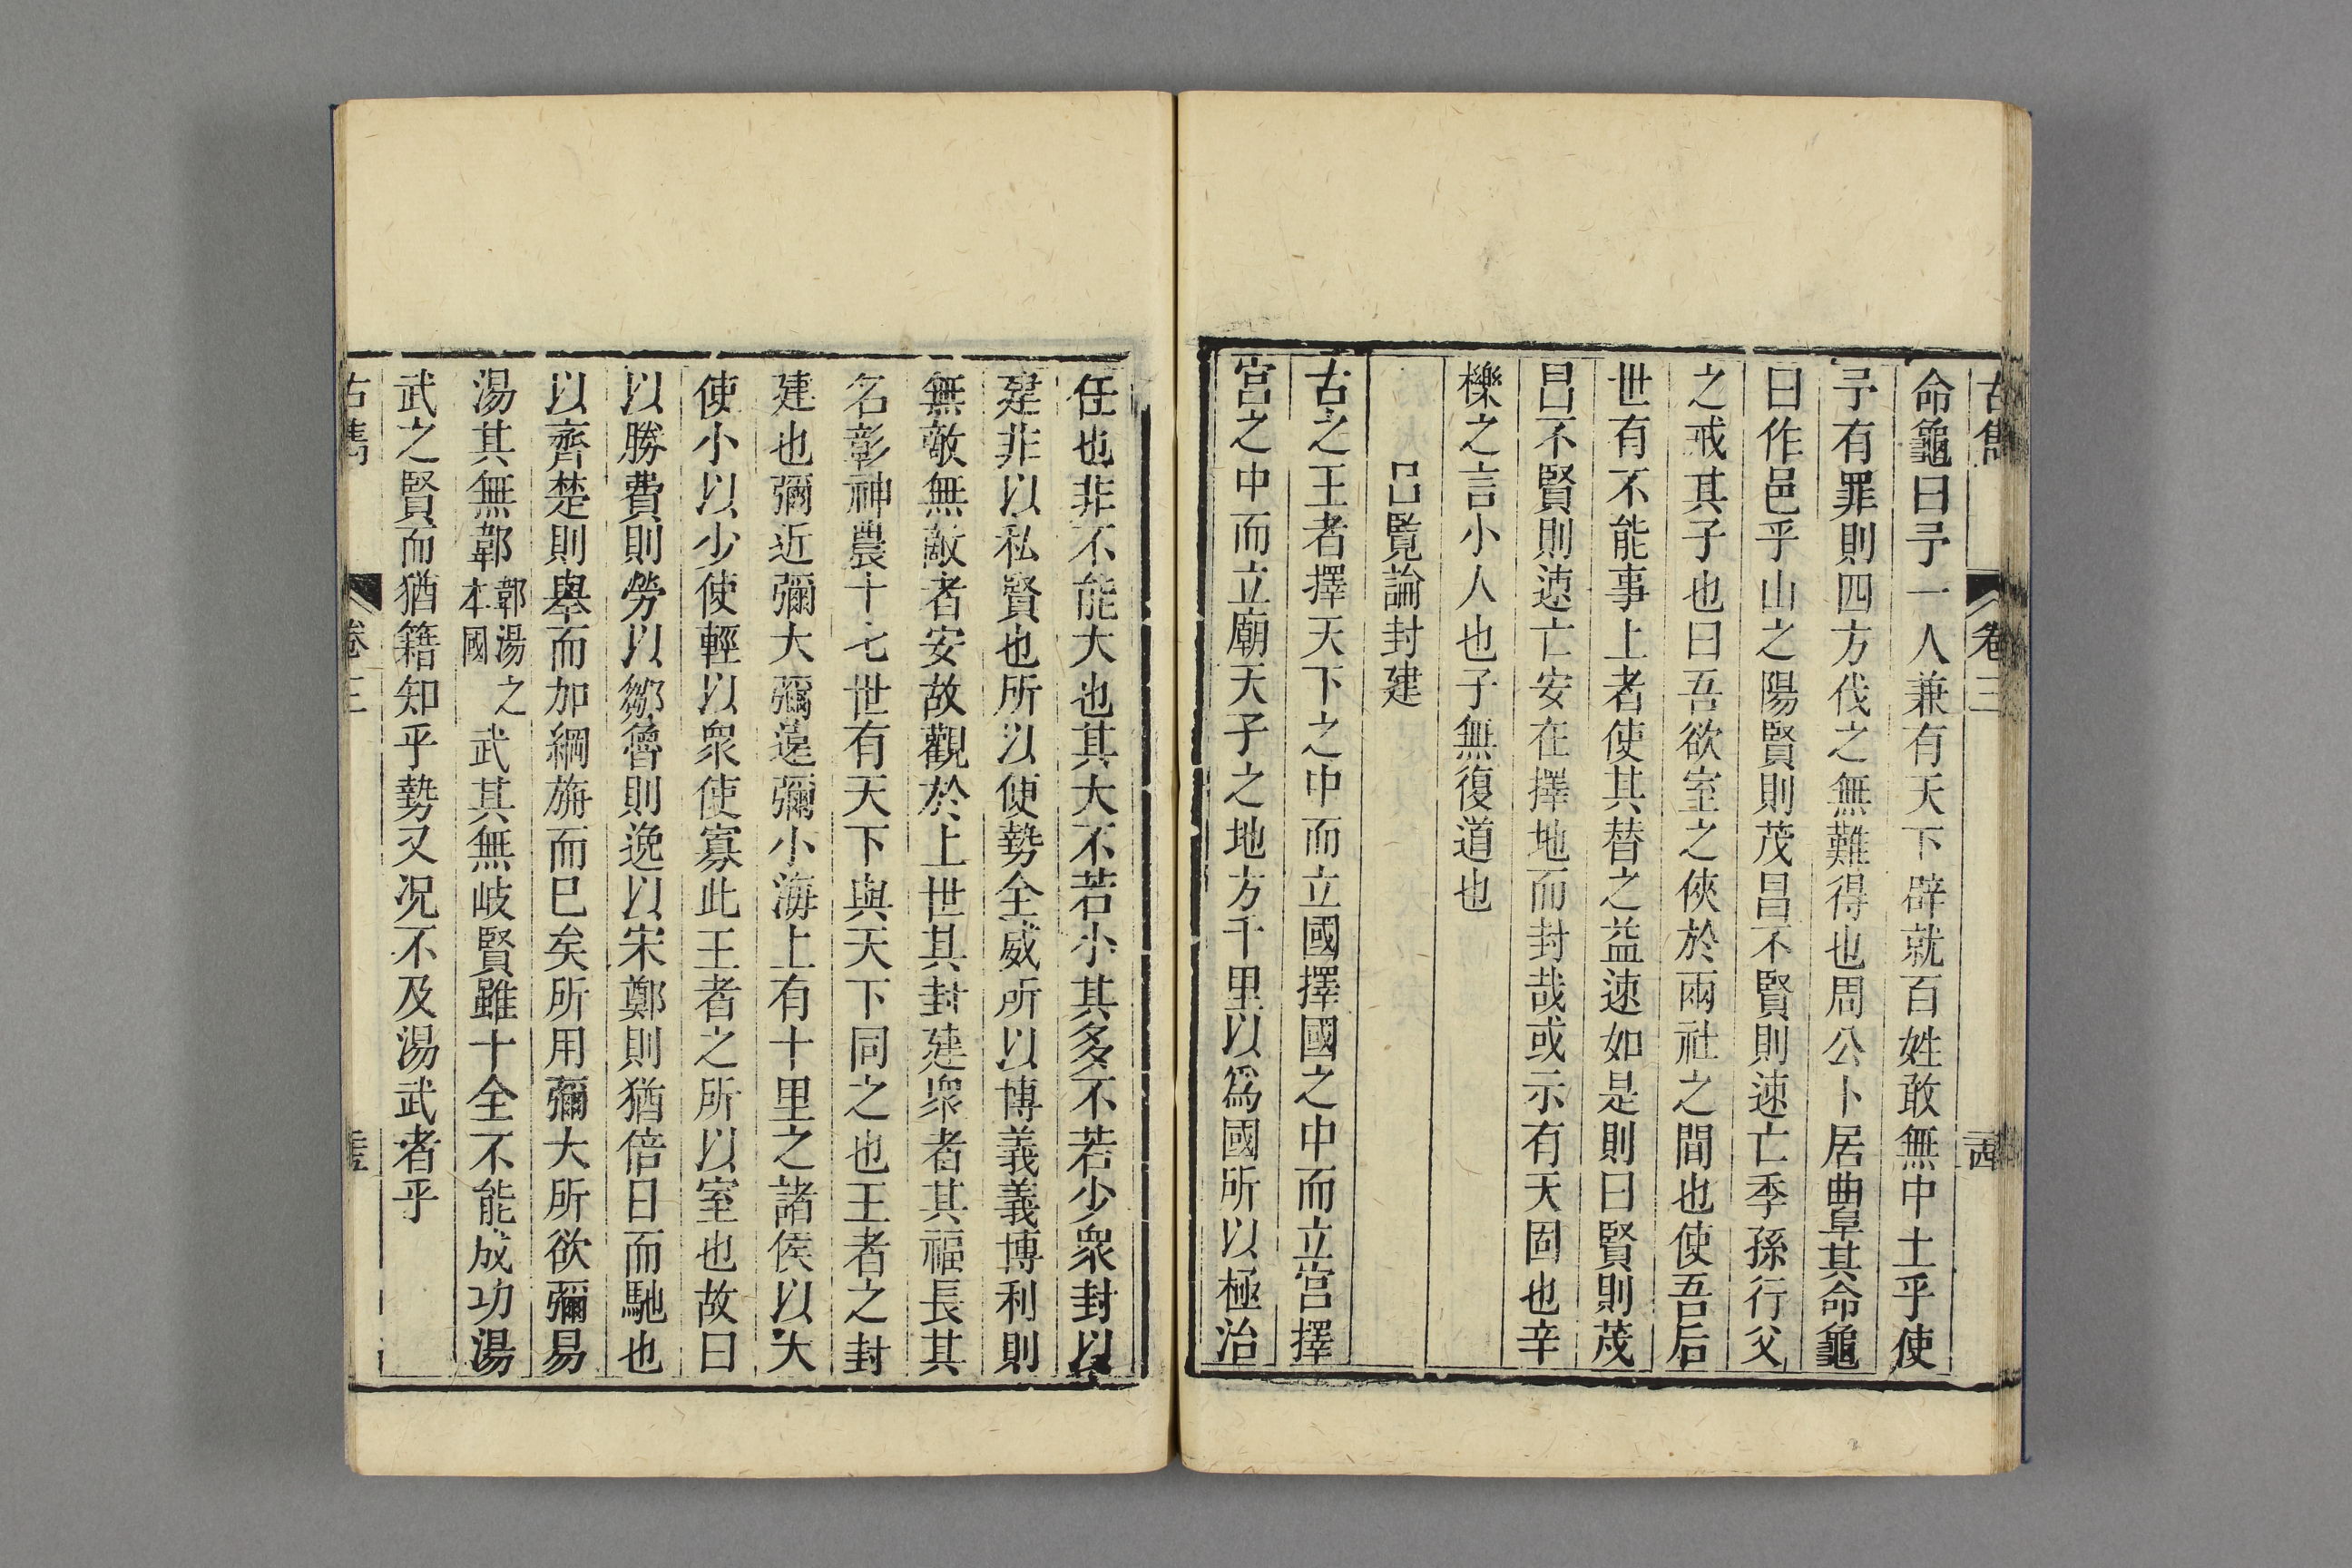 古雋 卷三 二十四
命龜曰予一人兼有天下辟就百姓敢無中土乎使
予有罪則四方伐之無難得也周公卜居曲阜其命龜
曰作邑乎山之陽賢則茂昌不賢則速亡季孫行父
之戒其子也曰吾欲室之俠於兩社之間也使吾后
世有不能事上者使其替之益速如是則曰賢則茂
昌不賢則速亡安在擇地而封哉或示有天固也辛
櫟之言小人也子無復道也
呂覽論封建
古之王者擇天下之中而立國擇國之中而立宮擇
宮之中而立廟天子之地方千里以爲國所以極治
任也非不能大也其大不若小其多不若少衆封以
建非以私賢也所以使勢全威所以博義義博利則
無敵無敵者安故觀於上世其封建衆者其福長其
名彰神農十七世有天下與天下同之也王者之封
建也彌近彌大彌遠彌小海上有十里之諸侯以大
使小以少使輕以衆使寡此王者之所以室也故曰
以勝費則勞以鄒魯則逸以宋鄭則猶倍日而馳也
以齊楚則舉而加綱旃而已矣所用彌大所欲彌易
湯其無鄣鄣湯之本國武其無岐賢雖十全不能成功湯
武之賢而猶籍知乎勢又况不及湯武者乎
古雋 卷三